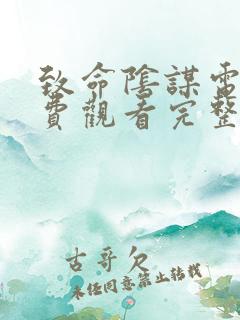 致命陰謀電
費觀看完整
古哥欠
未经同意禁止转载